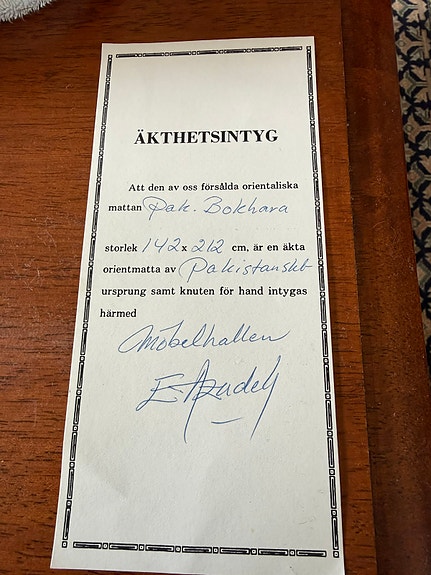 ÄKTHETSINTYG
Att den av oss försålda orientaliska
mattan Pak. Bokhara
storlek 142 x 212 cm, är en äkta
orientmatta av Pakistanskt
ursprung samt knuten för hand intygas
härmed
Möbelhallen